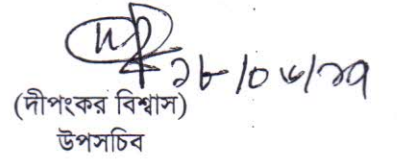 ১৮/০৬/১৭
(দীপংকর বিশ্বাস)
উপসচিব